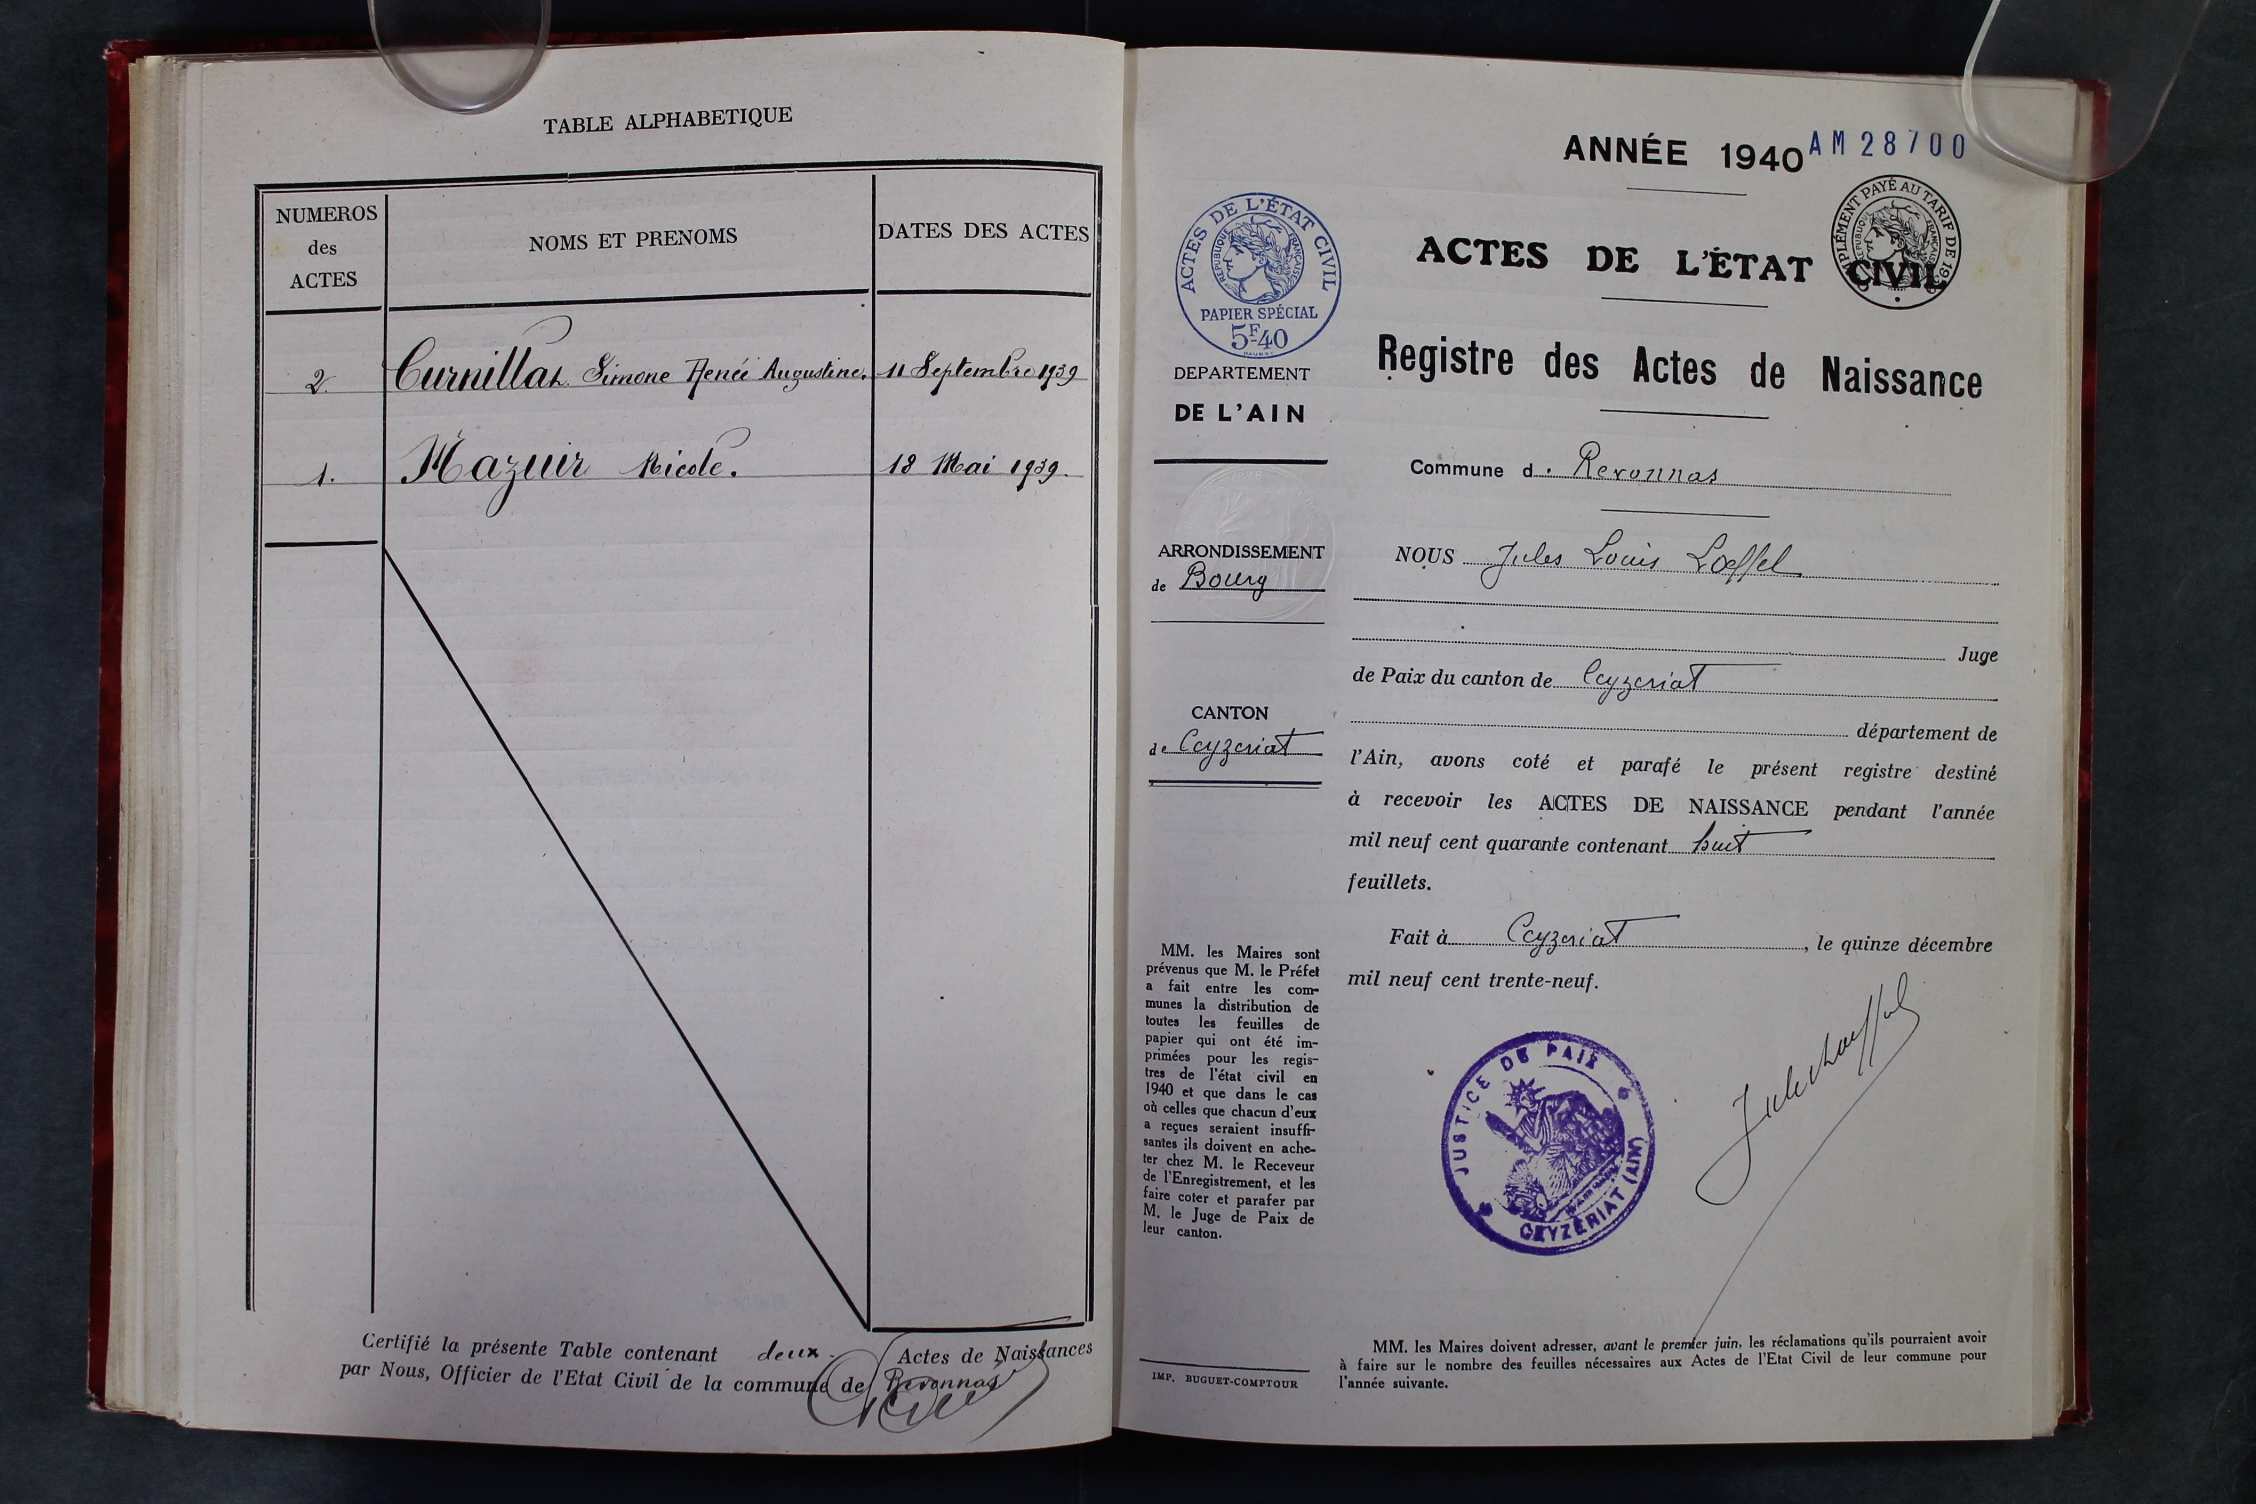 TABLE ALPHABETIQUE
NUMEROS
des
ACTES
NOMS ET PRENOMS
DATES DES ACTES
2 Curnillat Simone Renée Augustine. 11 Septembre 1939
1. Mazuir Nicole. 18 Mai 1939.
Certifié la présente Table contenant deux Actes de Naissances
par Nous, Officier de l'Etat Civil de la commune de Revonnas
ANNÉE 1940 AM 28700
ACTES DE L'ÉTAT CIVIL
SUPPLÉMENT PAYÉ AU TARIF DE
RÉPUBLIQUE FRANÇAISE
Registre des Actes de Naissance
Commune d. Revonnas
ACTES DE L'ÉTAT CIVIL
RÉPUBLIQUE FRANÇAISE
PAPIER SPÉCIAL
5F40
DEPARTEMENT
DE L'AIN
ARRONDISSEMENT
de Bourg
CANTON
de Ceyzeriat
MM. les Maires sont
prévenus que M. le Préfet
a fait entre les com-
munes la distribution de
toutes les feuilles de
papier qui ont été im-
primées pour les regis-
tres de l'état civil en
1940 et que dans le cas
où celles que chacun d'eux
a reçues seraient insuffi-
santes ils doivent en ache-
ter chez M. le Receveur
de l'Enregistrement, et les
faire coter et parafer par
M. le Juge de Paix de
leur canton.
IMP. BUGUET-COMPTOUR
NOUS Jules Louis Loeffel
Juge
de Paix du canton de Ceyzeriat
département de
l'Ain, avons coté et parafé le présent registre destiné
à recevoir les ACTES DE NAISSANCE pendant l'année
mil neuf cent quarante contenant huit
feuillets.
Fait à Ceyzeriat, le quinze décembre
mil neuf cent trente-neuf.
JUSTICE DE PAIX
CEYZÉRIAT (AIN)
Jules Loeffel
MM. les Maires doivent adresser, avant le premier juin, les réclamations qu'ils pourraient avoir
à faire sur le nombre des feuilles nécessaires aux Actes de l'Etat Civil de leur commune pour
l'année suivante.